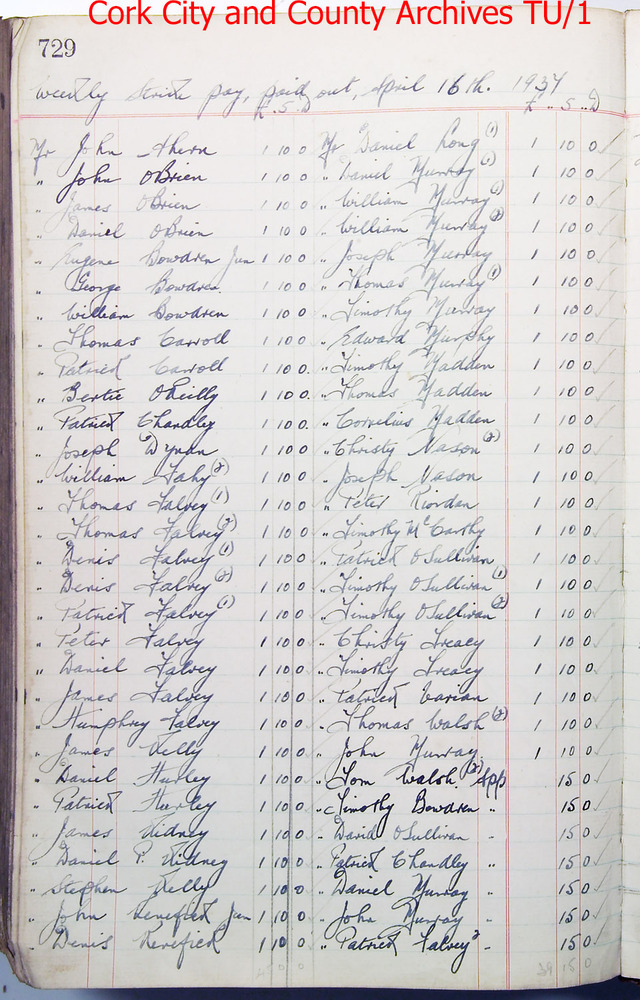 Cork City and County Archives TU/1
729
weekly strike pay, paid out, April 16th. 1937
£ S D
£ .. S .. D
Mr John Ahern 1 10 0
" John OBrien 1 10 0
" James OBrien 1 10 0
" Daniel OBrien 1 10 0
" Eugene Bowdren Jun 1 10 0
" George Bowdren 1 10 0
" William Bowdren 1 10 0
" Thomas Carroll 1 10 0
" Patrick Carroll 1 10 0
" Bertie OReilly 1 10 0
" Patrick Chandley 1 10 0
" Joseph Dynan 1 10 0
" William Fahy (2) 1 10 0
" Thomas Falvey (1) 1 10 0
" Thomas Falvey (2) 1 10 0
" Denis Falvey (1) 1 10 0
" Denis Falvey (2) 1 10 0
" Patrick Falvey (1) 1 10 0
" Peter Falvey 1 10 0
" Daniel Falvey 1 10 0
" James Falvey 1 10 0
" Humphrey Falvey 1 10 0
" James Kelly 1 10 0
" Daniel Hurley 1 10 0
" Patrick Hurley 1 10 0
" James Kidney 1 10 0
" Daniel P. Kidney 1 10 0
" Stephen Kelly 1 10 0
" John Kenefick Jun 1 10 0
" Denis Kenefick 1 10 0
Mr Daniel Long (1) 1 10 0
" Daniel Murray (1) 1 10 0
" William Murray (1) 1 10 0
" William Murray (2) 1 10 0
" Joseph Murray 1 10 0
" Thomas Murray (1) 1 10 0
" Timothy Murray 1 10 0
" Edward Murphy 1 10 0
" Timothy Madden 1 10 0
" Thomas Madden 1 10 0
" Cornelius Madden 1 10 0
" Christy Nason (2) 1 10 0
" Joseph Nason 1 10 0
" Peter Riordan 1 10 0
" Timothy McCarthy 1 10 0
" Patrick OSullivan 1 10 0
" Timothy OSullivan (1) 1 10 0
" Timothy OSullivan (2) 1 10 0
" Christy Treacy 1 10 0
" Timothy Treacy 1 10 0
" Patrick Varian 1 10 0
" Thomas Walsh (2) 1 10 0
" John Murray 1 10 0
" Tom Walsh (2) App 15 0
" Timothy Bowdren " 15 0
" David OSullivan " 15 0
" Patrick Chandley " 15 0
" Daniel Murray " 15 0
" John Murray " 15 0
" Patrick Falvey 2 " 15 0
39 15 0